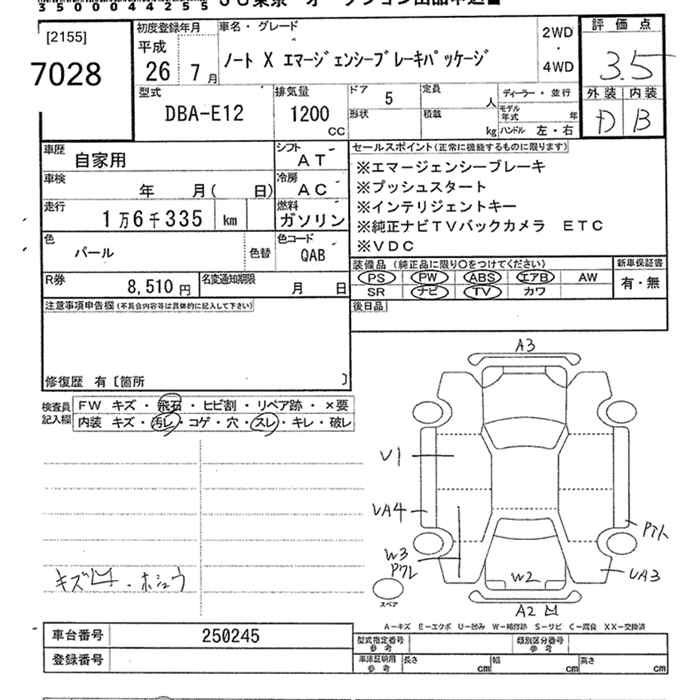 350004425 5
[2155]
7028
初度登録年月
平成
26年 7月
車名・グレード
ノート X エマージェンシーブレーキパッケージ
2WD
4WD
評価点
3.5
外装 内装
D B
型式
DBA-E12
排気量
1200
CC
ドア
5
形状
定員
人
積載
kg
ディーラー・並行
モデル年式
年
ハンドル 左・右
車歴
自家用
シフト
AT
車検
年 月( 日)
冷房
AC
走行
1万6千335 km
燃料
ガソリン
色
パール
色替
色コード
QAB
R券
8,510円
名変通知期限
月 日
セールスポイント(正常に機能するものに限ります)
※エマージェンシーブレーキ
※プッシュスタート
※インテリジェントキー
※純正ナビTVバックカメラ ETC
※VDC
装備品(純正品に限り○をつけてください)
PS PW ABS エアB AW
SR ナビ TV カワ
新車保証書
有・無
後日品
注意事項申告欄(不具合内容等は具体的に記入して下さい)
修復歴 有〔箇所 〕
検査員記入欄
FW キズ・飛石・ヒビ割・リペア跡・×要
内装 キズ・汚レ・コゲ・穴・スレ・キレ・破レ
キズ凹・ホシュウ
A3
U1
UA4
W3
Pクレ
W2
A2凹
UA3
スペア
A-キズ E-エクボ U-凹み W-補修跡 S-サビ C-腐食 XX-交換済
車台番号
250245
登録番号
型式指定番号
参考
類別区分番号
参考
車庫証明用
参考
長さ cm
幅 cm
高さ cm